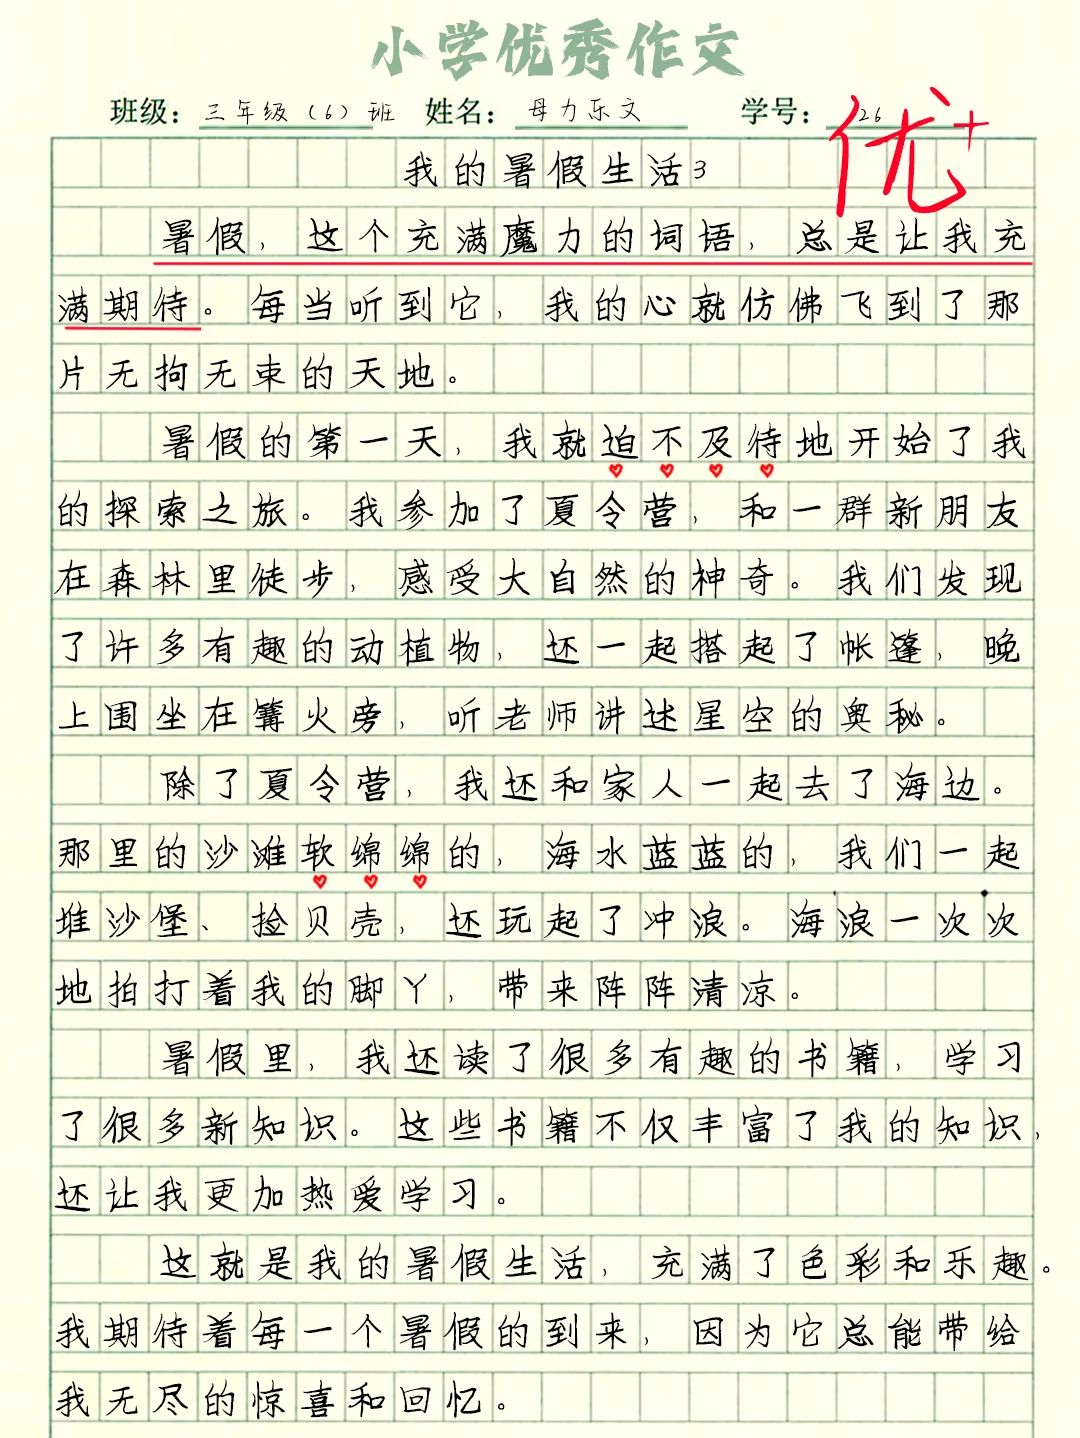 小学优秀作文
班级：三年级（6）班 姓名：母力乐文 学号：26
优+
我的暑假生活3
暑假，这个充满魔力的词语，总是让我充
满期待。每当听到它，我的心就仿佛飞到了那
片无拘无束的天地。
暑假的第一天，我就迫不及待地开始了我
的探索之旅。我参加了夏令营，和一群新朋友
在森林里徒步，感受大自然的神奇。我们发现
了许多有趣的动植物，还一起搭起了帐篷，晚
上围坐在篝火旁，听老师讲述星空的奥秘。
除了夏令营，我还和家人一起去了海边。
那里的沙滩软绵绵的，海水蓝蓝的，我们一起
堆沙堡、捡贝壳，还玩起了冲浪。海浪一次次
地拍打着我的脚丫，带来阵阵清凉。
暑假里，我还读了很多有趣的书籍，学习
了很多新知识。这些书籍不仅丰富了我的知识，
还让我更加热爱学习。
这就是我的暑假生活，充满了色彩和乐趣。
我期待着每一个暑假的到来，因为它总能带给
我无尽的惊喜和回忆。